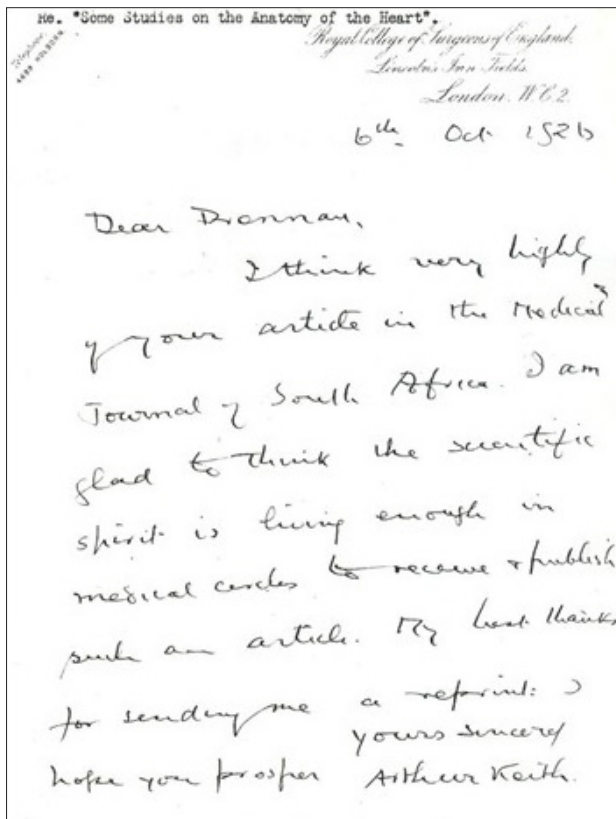 Re. "Some Studies on the Anatomy of the Heart".
Royal College of Surgeons of England,
Lincoln's Inn Fields,
London. W.C.2.
6th Oct 192
Dear Drennan,
I think very highly
of your article in the Medical
Journal of South Africa. I am
glad to think the scientific
spirit is living enough in
medical circles to receive & publish
such an article. My best thanks
for sending me a reprint: I
yours sincerely
hope you prosper Arthur Keith.